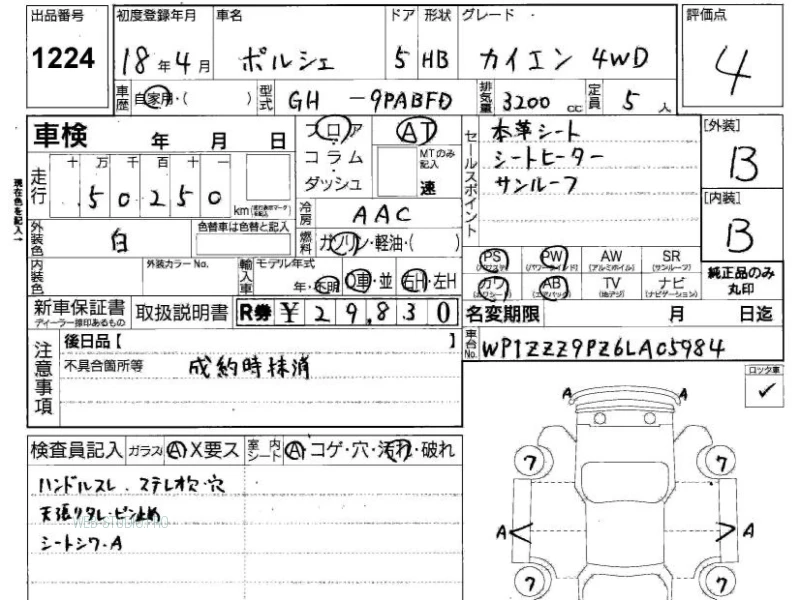 出品番号 初度登録年月 車名 ドア 形状 グレード 評価点
1224 18年4月 ポルシェ 5 HB カイエン 4WD 4
車歴 自家用・( ) 型式 GH -9PABFD 排気量 3200 cc 定員 5 人
車検 年 月 日 フロア AT セールスポイント 本革シート [外装]
コラム MTのみ記入 シートヒーター B
ダッシュ 速 サンルーフ
現在色を記入→ 走行 十 万 千 百 十 一
50250 km
冷房 AAC [内装]
外装色 白 色替車は色替と記入 燃料 ガソリン・軽油・( ) B
PS (パワステ) PW (パワーウインド) AW (アルミホイル) SR (サンルーフ)
内装色 外装カラーNo. 輸入車 モデル年式 年・不明 D車・並 右H・左H カワ (カワシート) AB (エアバック) TV (地デジ) ナビ (ナビゲーション) 純正品のみ丸印
新車保証書 ディーラー捺印あるもの 取扱説明書 R券 ¥ 29,830 名変期限 月 日迄
注意事項 後日品【 】 車台No. WP1ZZZ9PZ6LA05984
不具合箇所等 成約時抹消 ロック車
✓
A A
検査員記入 ガラス A X要ス 室内シート A・コゲ・穴・汚れ・破れ 7 7
ハンドルスレ、ステレオ穴・穴
天張りタレ・ピン止め
WEB STUDIO PRO
シートシワ・A A A
7 7